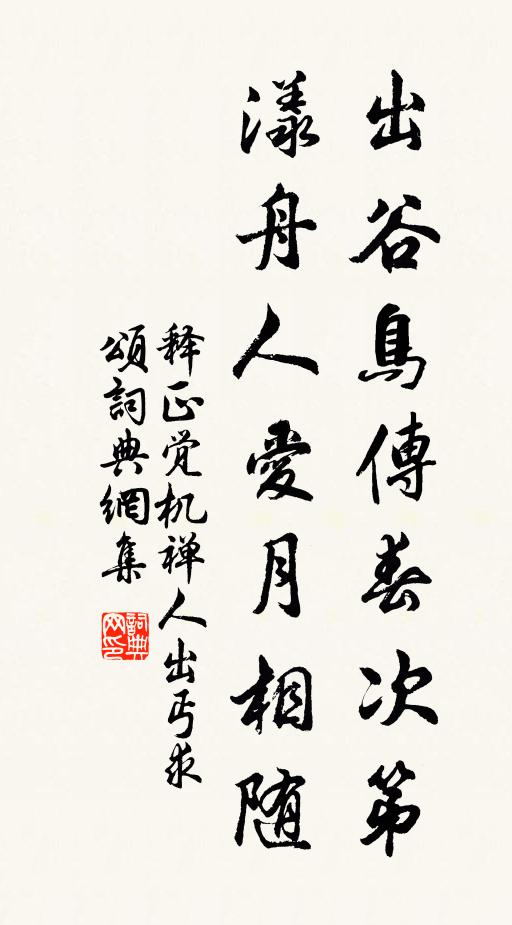 出谷鳥傳春次第
漾舟人愛月相随
释正觉机禅人出丐求
頌詞典網集
詞典网印